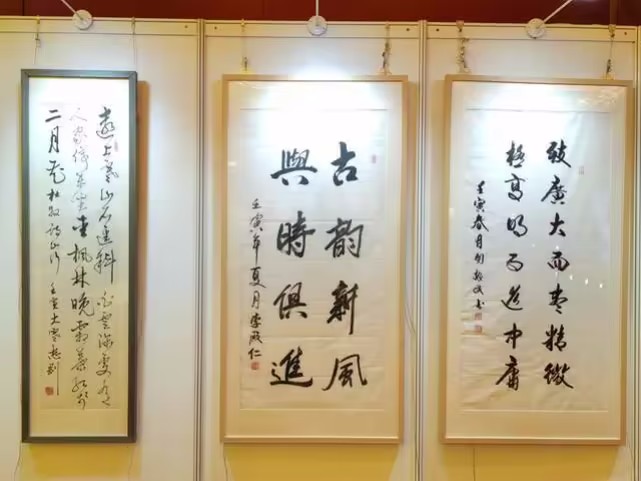 遠上寒山石逕斜 白雲深處有
人家停車坐愛楓林晚霜葉紅於
二月花 杜牧詩山行 壬寅大寒
古韻新風
與時俱進
壬寅年夏月李殿仁
致廣大而盡精微
極高明而道中庸
壬寅春月劉 書